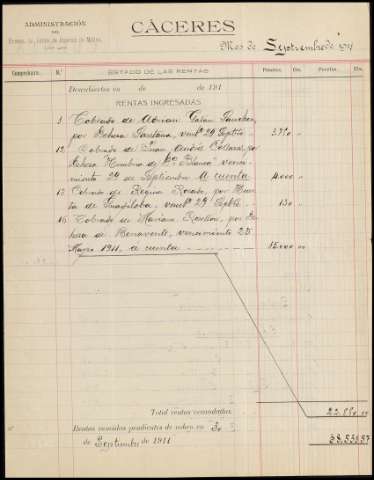 ADMINISTRACIÓN
DEL
CÁCERES
Mes de Septiembre de 1911
Comprobante. N.º ESTADO DE LAS RENTAS Pesetas. Cts. Pesetas. Cts.
Descubiertos en de de 191
RENTAS INGRESADAS
Cobrado de Adrian Galan Sanchez,
por Dehesa Santana, venbº 29 Septbre
12 Cobrado de Juan Collazos, por
Dehesa "Cumbres de Blanca" venci-
miento 29 de Septiembre A cuenta 4.000 "
13 Cobrado de Regina Rosado, por Huer-
ta de Guadiloba, venbº 29 Septbre 130 "
Cobrado de Mariano, por De-
hesa de Benavente, vencimiento 25
Marzo 1911, a cuenta 15.000 "
Total rentas recaudadas
Rentas vencidas pendientes de cobro en 30
de Septiembre de 1911